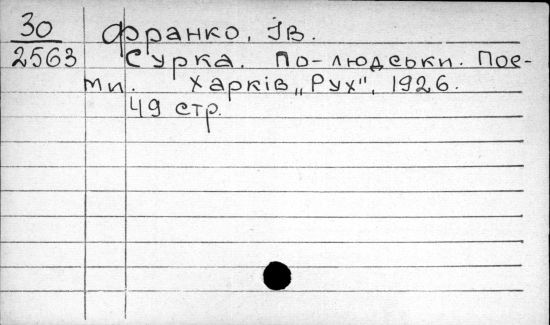 30 Франко, Ів.
2563 Сурка. По-людськи. Пое-
ми. Харків „Рух", 1926.
49 стр.